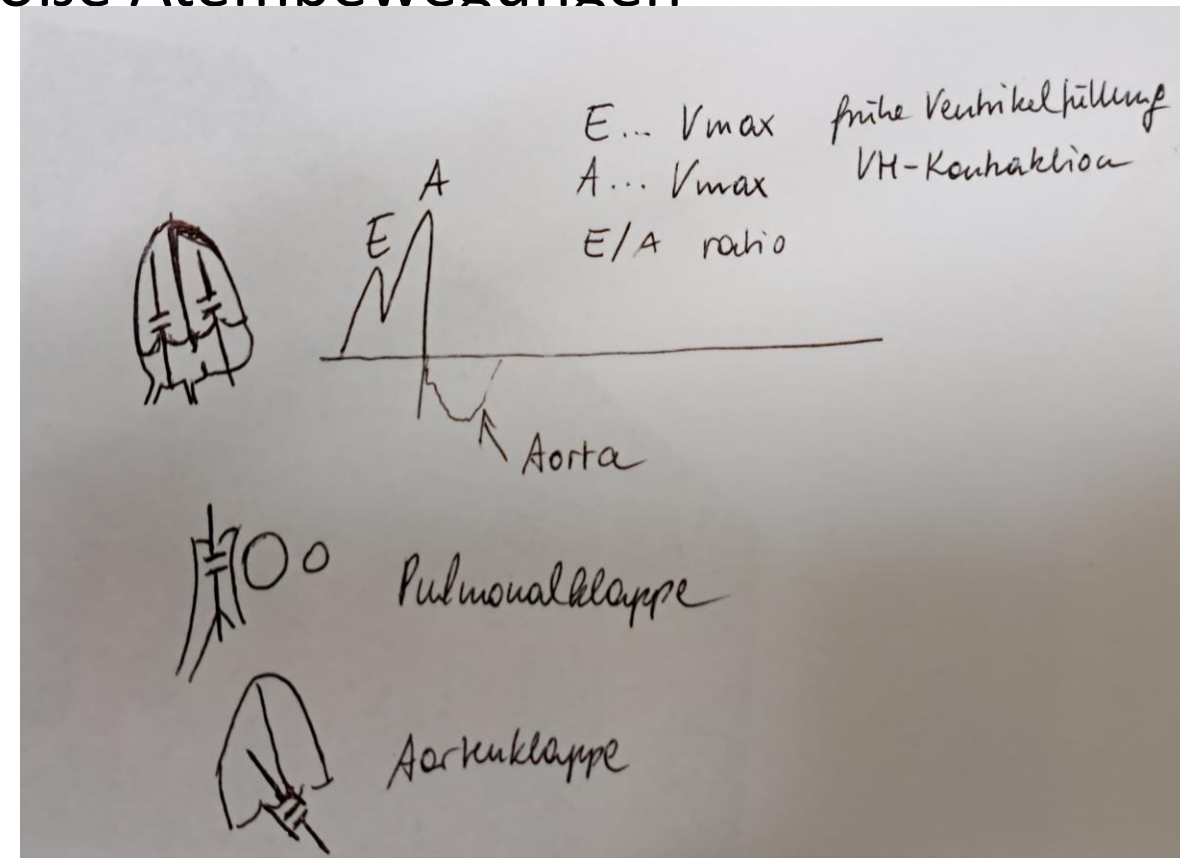 Atembewegungen
E... Vmax frühe Ventrikelfüllung
A... Vmax VH-Kontraktion
E/A ratio
A
E
Aorta
Pulmonalklappe
Aortenklappe